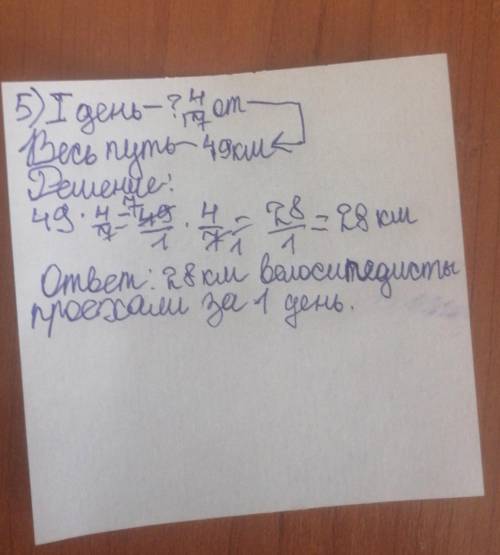 5) I день - ? 4/7 от
Весь путь - 49км
Решение:
49 · 4/7 = 49/1 · 4/7 = 28/1 = 28 км
Ответ: 28 км велосипедисты
проехали за 1 день.